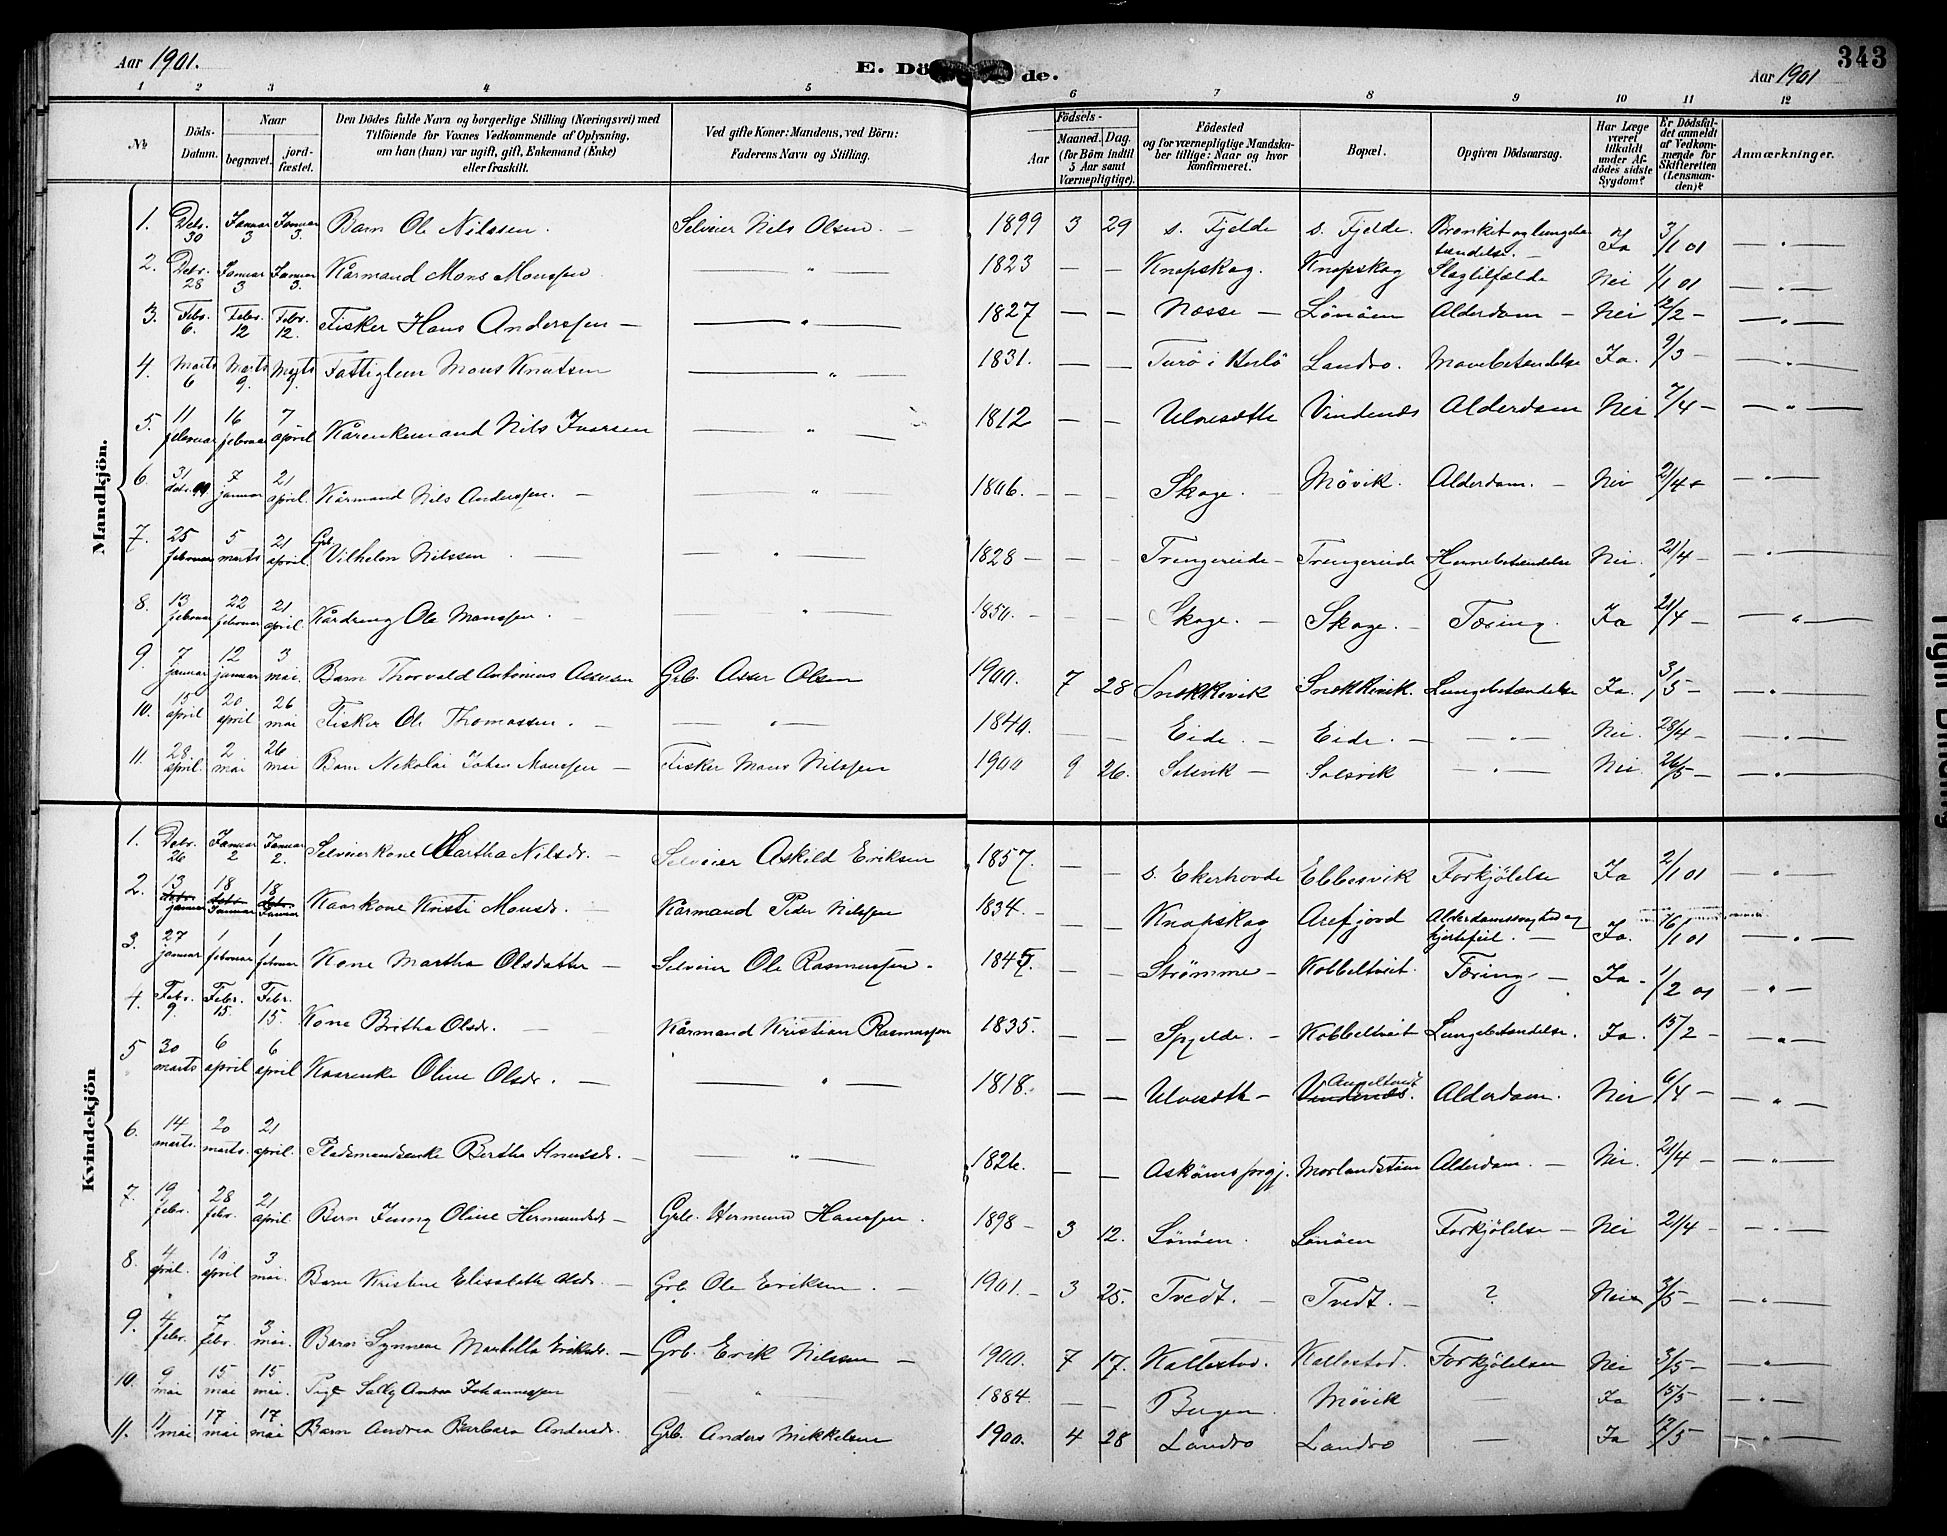 Aar 1901.
E. Dö de.
Aar 1901
343
1 2 3 4 5 6 7 8 9 10 11 12
№
Döds-Datum.
Naar
begravet.
jord-fæstet.
Den Dödes fulde Navn og borgerlige Stilling (Næringsvei) med
Tilföiende for Voxnes Vedkommende af Oplysning,
om han (hun) var ugift, gift, Enkemand (Enke)
eller fraskilt.
Ved gifte Koner: Mandens, ved Börn:
Faderens Navn og Stilling.
Födsels-
Aar
Maaned. Dag.
(for Börn indtil
5 Aar samt
Værnepligtige).
Födested
og for værnepligtige Mandska-
ber tillige: Naar og hvor
konfirmeret.
Bopæl.
Opgiven Dödsaarsag.
Har Læge
været
tilkaldt
under Af-
dödes sidste
Sygdom?
Er Dödsfal-
det anmeldt
af Vedkom-
mende for
Skifteretten
(Lensman-
den)?
Anmærkninger.
Mandkjön.
1. Debr. 30 Januar 3 Januar 3. Barn Ole Nilssen. Selveier Nils Olsen. — 1899 3 29 s. Fjelde s. Fjelde. Bronkit og lungebetændelse. — Ja 3/1 01 — " —
2. Debr. 28 Januar 3 Januar 3. Kårmand Mons Monssen — " — 1823 — — Knapskog. Knapskog Slagtilfælde Nei 1/1 01 — " —
3. Febr. 6 Febr. 12 Febr. 12. Fisker Hans Anderssen — — " — 1827 — — Næsse — Lönöen Alderdom — Nei 12/2 — — " —
4. Marts 6 Marts 9. Marts 9. Fattiglem Mons Knutsen — " — 1831. — — Turö i Herlö Landro. Mavebetændelse Ja. 9/3 — — " —
5. 11 februar 16 februar 7 april Kårenkemand Nils Ivarsen — " — 1812 — — Ulvesæth Vindenæs Alderdom Nei 7/4 — — " —
6. 31 debr. 7 januar 21 april Kårmand Nils Anderssen. — — " — 1806. — — — Skoge. — Mövik. Alderdom. — Nei 21/4 — " —
7. 25 februar 5 marts 21 april Grb. Vilhelm Nilssen — — " — 1828 — — — Trengereide — Trengereide Hjernebetændelse Nei. 21/4 — " —
8. 13 februar 22 februar 21 april. Kårdreng Ole Monssen — — " — 1850. — — — Skoge. — Skoge. — Tæring. Ja 21/4 — — " —
9. 7 januar 12 januar 3 mai. Barn Thorvald Antonius Assersen Grb. Asser Olsen 1900. 7 28 Snekkevik Snekkevik. Lungebetændelse Ja. 3/5 — — " —
10. 15 april 20 april 26 mai Fisker Ole Thomassen. — — " — 1840. — — Eide. — Eide. — — " — Nei. 28/4 — — " —
11. 28 april. 2 mai 26 mai Barn Nikolai Johan Monssen — Fisker Mons Nilssen 1900 9 26. Solsvik — Solsvik — " — Nei. 26/5 — — " —
Kvindekjön
1. Debr. 26 Januar 2 Januar 2. Selveierkone Martha Nilsdr. — Selveier Askild Eriksen 1857. — — s. Ekerhovde Ebbesvik Forkjölelse Ja 2/1 01 — " —
2. 13 januar 18 Januar 18 Januar Kaarkone Kristi Monsdr. — Kårmand Peder Nilssen 1834. — — — Knapskog Arefjord Alderdomssvaghed og hjertefeil. — Ja. 16/1 01 — " —
3. 27 januar 1 februar 1 februar Kone Martha Olsdatter — Selveier Ole Rasmussen. 1845. — — Strömme — Kobbeltveit. Tæring. — Ja — 1/2 01 — " —
4. Febr. 9 Febr. 15 Febr. 15. Kone Britha Olsdr. — Kårmand Kristian Rasmussen 1835. — — Spjelde. — Kobbeltveit Lungebetændelse. Ja. 15/2 — — " —
5 30 marts 6 april 6 april Kaarenke Oline Olsdr. — — " — 1818. — — Ulvesæth — Angeltveit Vindenæs. Alderdom. Nei 6/4 — — " —
6. 14 marts. 20 marts. 21 april. Pladsmandsenke Bertha Knutsdr. — — " — 1826. — — Asköens prgj. Morlandstöen Alderdom. — Nei. 21/4 — — " —
7. 19 febr. 28 febr. 21 april Barn Jenny Oline Hermundsdr — Grb. Hermund Hanssen. 1898 — 3 12. Lönöen. Lönöen Forkjölelse — Nei 21/4 — — " —
8. 4 april. 10 april 3 mai. Barn Kristine Elisabeth Olsdr. — Grb. Ole Eriksen. — 1901. — 3 25. Tvedt. — Tvedt. — ? Nei 3/5 — — " —
9. 4 febr. 7 febr. 3 mai. Barn Synneve Marbella Eriksdr. — Grb. Erik Nilssen — 1900. 7 17. Kallestad. Kallestad. Forkjölelse Nei 3/5 — — " —
10. 9 mai 15 mai 15 mai. Pige Sally Andrea Johannessen — " — 1884. — — Bergen. Mövik — Ja 15/5 — " —
11. 11 mai 17 mai 17 mai Barn Andrea Barbara Andersdr. Grb. Anders Mikkelsen 1900. 4 28 Landro Landro — Ja 17/5 — — " —